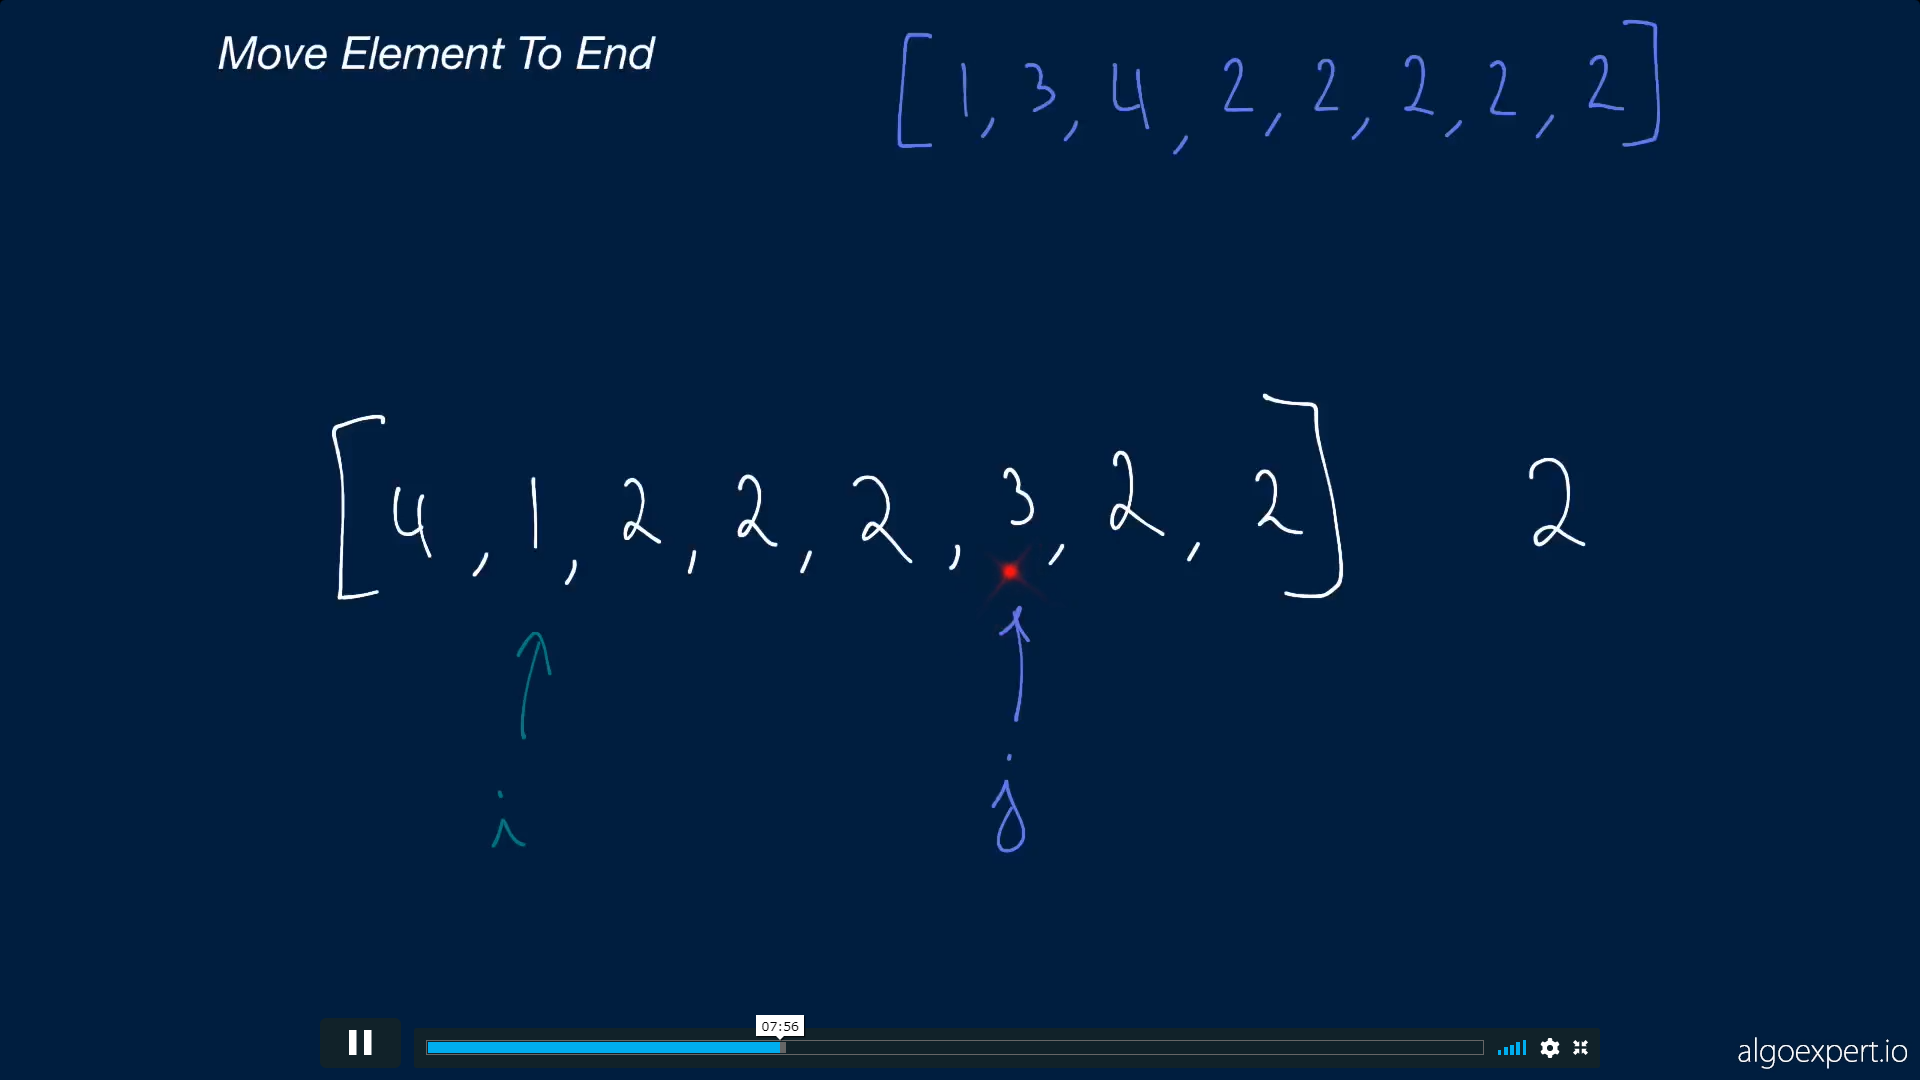 Move Element To End
[1, 3, 4, 2, 2, 2, 2, 2]
[4, 1, 2, 2, 2, 3, 2, 2] 2
i j
07:56
algoexpert.io